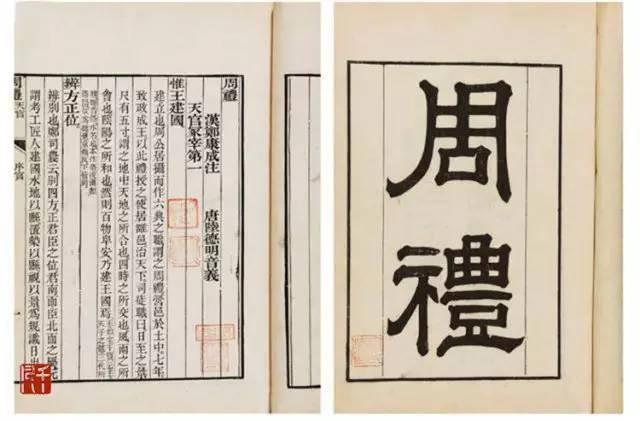 周禮
周禮
漢鄭康成注 唐陸德明音義
天官冢宰第一
惟王建國
建立也周公居攝而作六典之職謂之周禮營邑於土中七年
致政成王以此禮授之使居雒邑治天下司徒職曰日至之景
尺有五寸謂之地中天地之所合也四時之所交也風雨之所
會也陰陽之所和也然則百物阜安乃建王國焉
辨方正位
辨別也鄭司農云別四方正君臣之位君南面臣北面之屬元
謂考工匠人建國水地以縣置槷以縣視以景爲規識日出
周禮 天官 序官